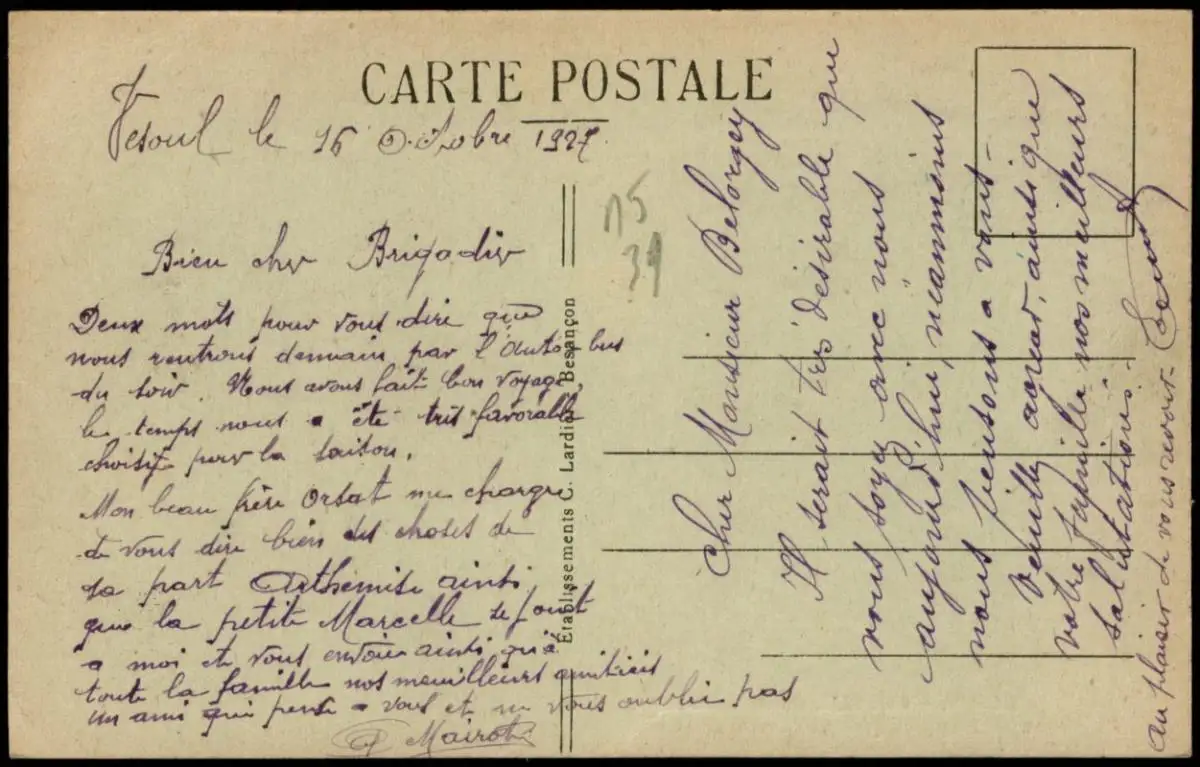 CARTE POSTALE
Vesoul le 16 Octobre 1927
Bien cher Brigadier
Deux mots pour vous dire que
nous rentrons demain par l'auto-bus
du soir. Nous avons fait bon voyage,
le temps nous a été très favorable
choisit pour la saison.
Mon beau frère Orsat me charge
de vous dire bien des choses de
sa part Arthémise ainsi
que la petite Marcelle se joint
a moi et vous envoie ainsi qu'à
toute la famille nos meuilleurs amitiés
un ami qui pense a vous et ne vous oublie pas
Mairot
15
39
Etablissements C. Lardier Besançon
Cher Monsieur Belorgey
Il serait très désirable que
vous soyez avec nous
aujourd'hui, néanmoins
nous pensons a vous -
Veuillez agréer, ainsi que
votre famille nos meilleurs
salutations.
au plaisir de vous revoir.